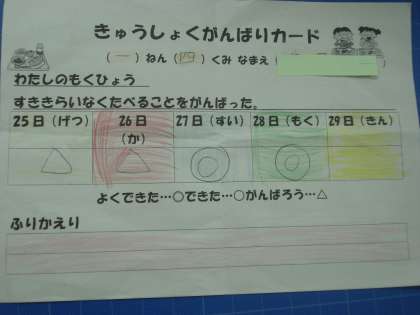 きゅうしょくがんばりカード
（一）ねん（四）くみ なまえ（
わたしのもくひょう
すききらいなくたべることをがんばった。
25日（げつ） 26日（か） 27日（すい） 28日（もく） 29日（きん）
△ △ ◎ ◎
よくできた…○できた…○がんばろう…△
ふりかえり